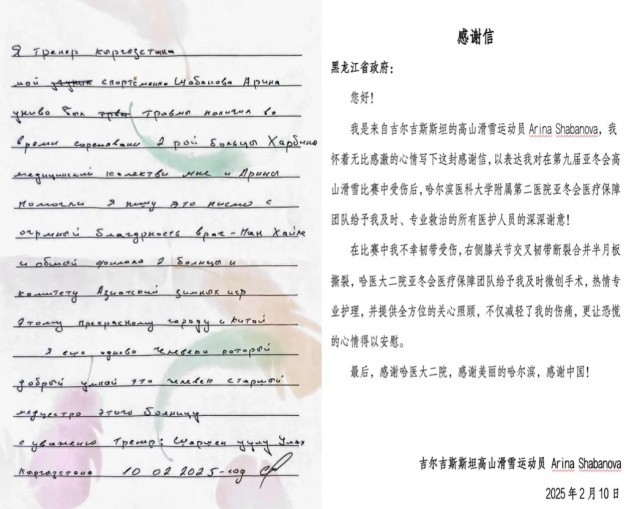 Я тренер Кыргызстана
мой спортсменка Шабанова Арина
был травмы получил во
время соревнований 2 рой больцы Харбина
медицинский мне и Арины
помогли Я пишу это письмо с
огромный благодрность врач-
и 2 болницы и
комитету Азиатский зимных игр
Этому прекрасному городу и Китай
Я ещо одново человека который
добрый умной это человек старшый
медсестро этого болницу
с уважению Тренер: уулу
Кыргызстана 10 02 2025-год
感谢信
黑龙江省政府：
您好！
我是来自吉尔吉斯斯坦的高山滑雪运动员 Arina Shabanova，我
怀着无比感激的心情写下这封感谢信，以表达我对在第九届亚冬会高
山滑雪比赛中受伤后，哈尔滨医科大学附属第二医院亚冬会医疗保障
团队给予我及时、专业救治的所有医护人员的深深谢意！
在比赛中我不幸韧带受伤，右侧膝关节交叉韧带断裂合并半月板
撕裂，哈医大二院亚冬会医疗保障团队给予我及时微创手术，热情专
业护理，并提供全方位的关心照顾，不仅减轻了我的伤痛，更让恐慌
的心情得以安慰。
最后，感谢哈医大二院，感谢美丽的哈尔滨，感谢中国！
吉尔吉斯斯坦高山滑雪运动员 Arina Shabanova
2025 年 2 月 10 日